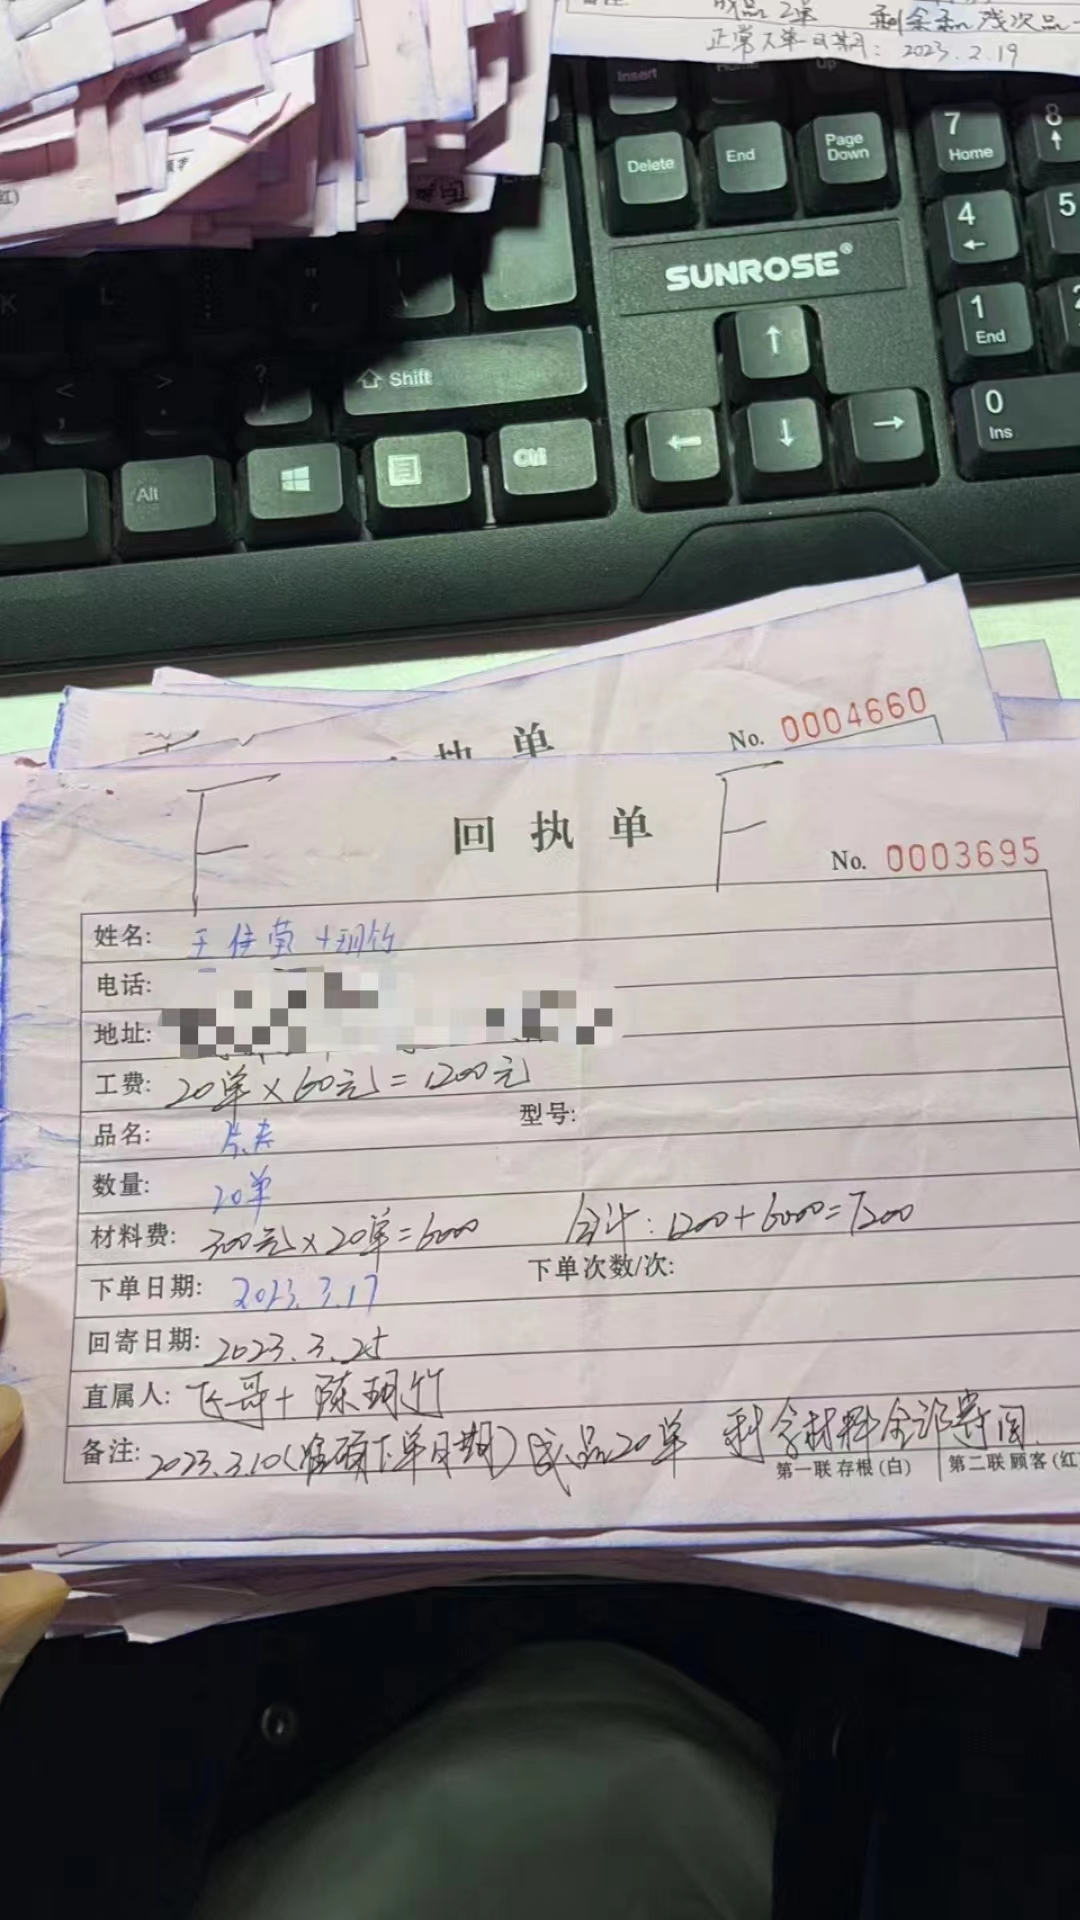 成品2单 剩余和残次品
正常下单日期: 2023.2.19
Insert
Home
Up
Delete
End
Page Down
7 Home
8
4
5
SUNROSE®
1 End
2
Shift
0 Ins
Alt
Ctrl
执 单
No. 0004660
回 执 单
No. 0003695
姓名: 王佳莹+玥竹
电话:
地址:
工费: 20单×60元=1200元
品名: 型号:
数量: 20单
材料费: 300元×20单=6000 合计:1200+6000=7200
下单日期: 2023.3.17 下单次数/次:
回寄日期: 2023.3.25
直属人: 飞哥+陈玥竹
备注: 2023.3.10(准确下单日期)成品20单 剩余材料全部寄回
第一联 存根(白) 第二联 顾客(红